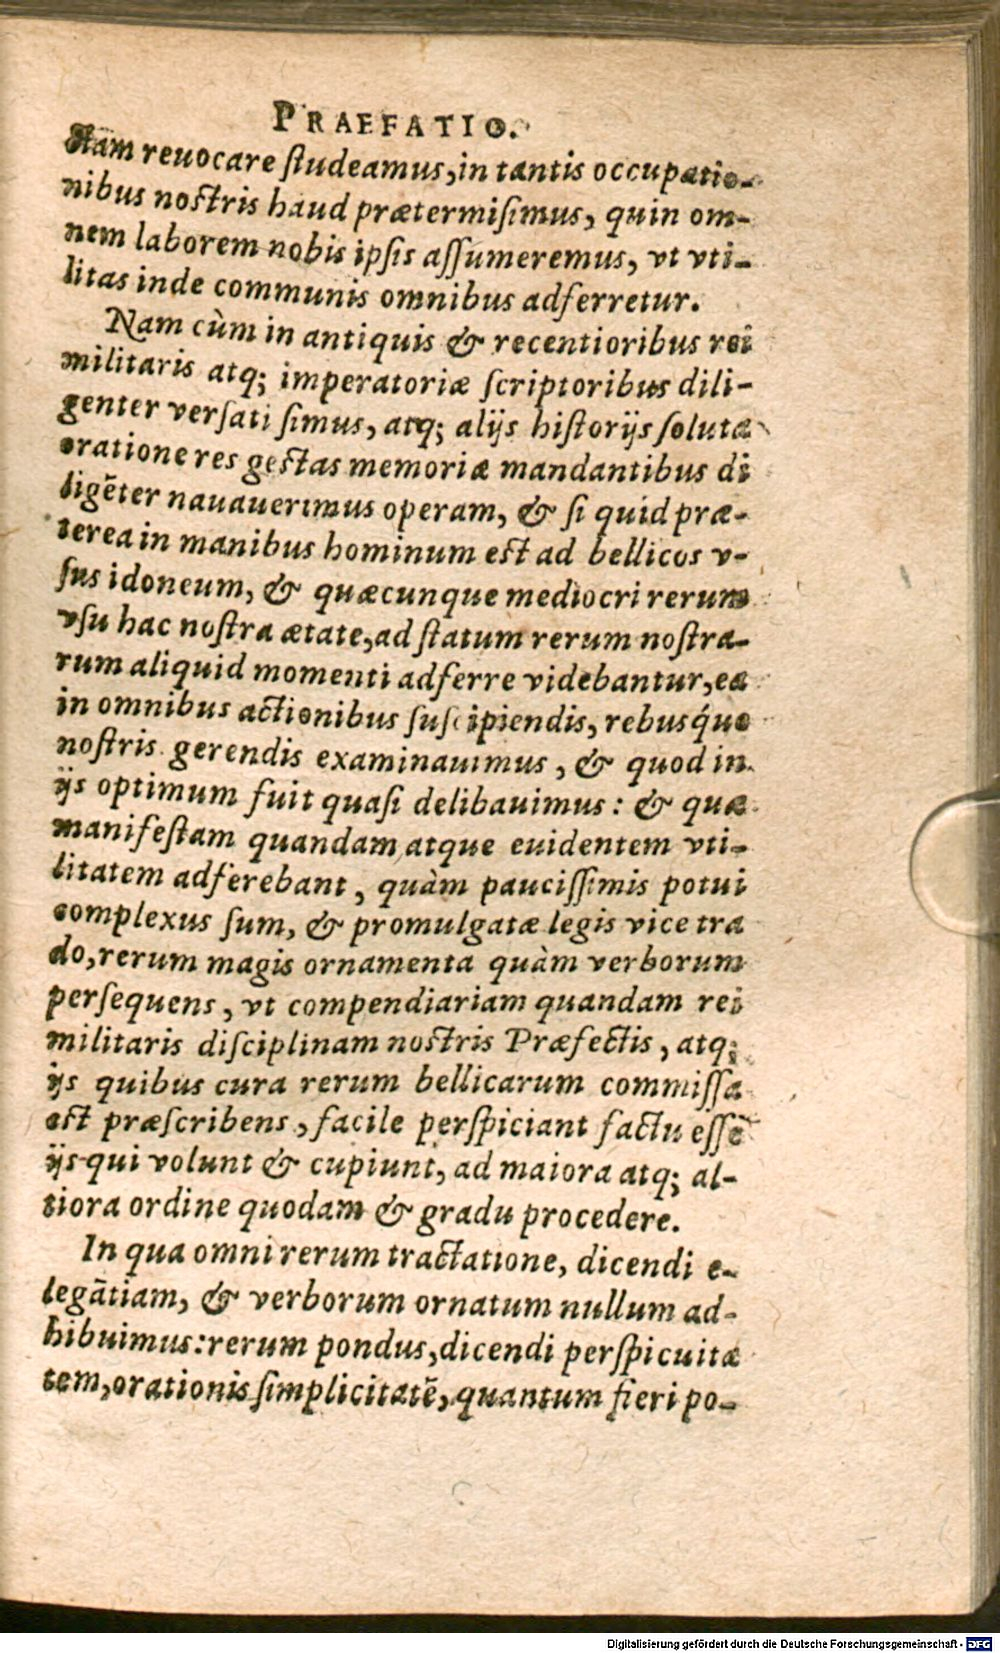 PRAEFATIO.
ctam reuocare ſtudeamus, in tantis occupatio-
nibus noſtris haud prætermiſimus, quin om-
nem laborem nobis ipſis aſſumeremus, vt vti-
litas inde communis omnibus adferretur.
Nam cùm in antiquis & recentioribus rei
militaris atq; imperatoriæ ſcriptoribus dili-
genter verſati ſimus, atq; alijs hiſtorijs ſoluta
oratione res geſtas memoriæ mandantibus di
ligēter nauauerimus operam, & ſi quid præ-
terea in manibus hominum eſt ad bellicos v-
ſus idoneum, & quæcunque mediocri rerum
vſu hac noſtra ætate, ad ſtatum rerum noſtra-
rum aliquid momenti adferre videbantur, ea
in omnibus actionibus ſuſcipiendis, rebusq́ue
noſtris gerendis examinauimus, & quod in
ijs optimum fuit quaſi delibauimus: & quæ
manifeſtam quandam atque euidentem vti-
litatem adferebant, quàm pauciſſimis potui
complexus ſum, & promulgatæ legis vice tra
do, rerum magis ornamenta quàm verborum
perſequens, vt compendiariam quandam rei
militaris diſciplinam noſtris Præfectis, atq;
ijs quibus cura rerum bellicarum commiſſa
eſt præſcribens, facile perſpiciant factu eſſe
ijs qui volunt & cupiunt, ad maiora atq; al-
tiora ordine quodam & gradu procedere.
In qua omni rerum tractatione, dicendi e-
legātiam, & verborum ornatum nullum ad-
hibuimus: rerum pondus, dicendi perſpicuita
tem, orationis ſimplicitatē, quantum fieri po-
Digitalisierung gefördert durch die Deutsche Forschungsgemeinschaft - DFG